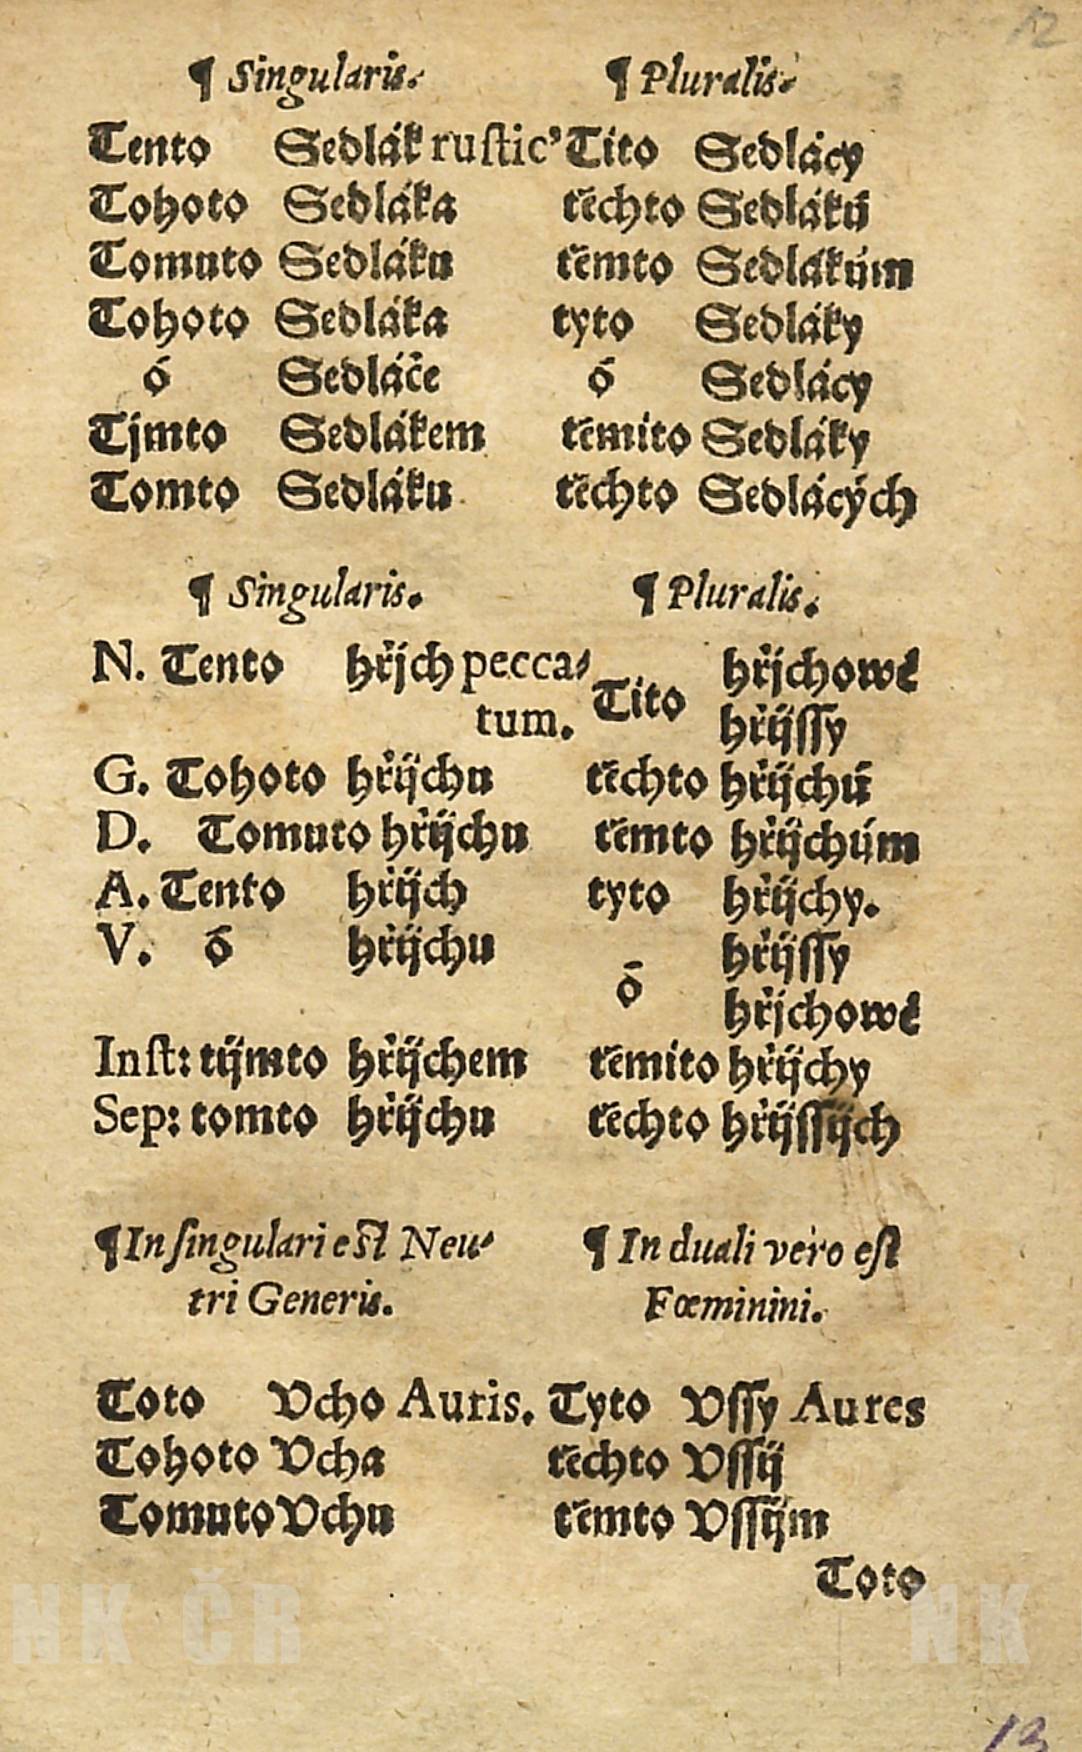 12
¶ Singularis. ¶ Pluralis.
Tento Sedlák rustic’ Tito Sedlácy
Tohoto Sedláka těchto Sedláků
Tomuto Sedláku těmto Sedlákům
Tohoto Sedláka tyto Sedláky
ó Sedláče ó Sedlácy
Tjmto Sedlákem těmito Sedláky
Tomto Sedláku těchto Sedlácých
¶ Singularis. ¶ Pluralis.
N. Tento hřjch pecca- Tito hřjchowé
tum. hřijſſy
G. Tohoto hřijchu těchto hřijchů
D. Tomuto hřijchu těmto hřijchům
A. Tento hřijch tyto hřijchy.
V. ó hřijchu hřijſſy
ó hřjchowé
Inſt: tijmto hřijchem těmito hřijchy
Sep: tomto hřijchu těchto hřijſſijch
¶ In ſingulari eſt Neu- ¶ In duali vero eſt
tri Generis. Fœminini.
Toto Vcho Auris. Tyto Vſſy Aures
Tohoto Vcha těchto Vſſij
Tomuto Vchu těmto Vſſijm
Toto
NK ČR NK
13